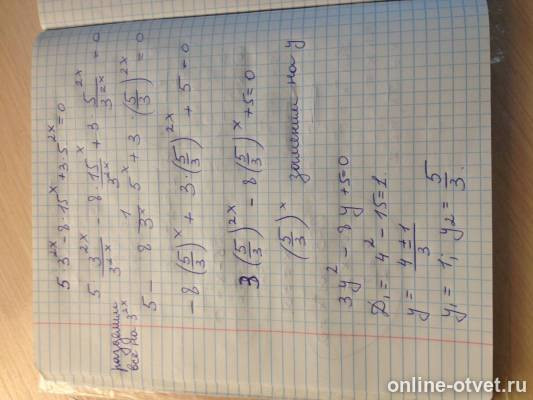 5 3^2x - 8·15^x + 3·5^2x = 0
разделим все на 3^2x
5 3^2x/3^2x - 8·15^x/3^2x + 3 5^2x/3^2x = 0
5 - 8 1/3^x 5^x + 3 (5/3)^2x = 0
-8(5/3)^x + 3·(5/3)^2x + 5 = 0
3(5/3)^2x - 8(5/3)^x + 5 = 0
(5/3)^x заменим на y
3y² - 8y + 5 = 0
D₁ = 4² - 15 = 1
y = 4±1/3
y₁ = 1; y₂ = 5/3.
online-otvet.ru